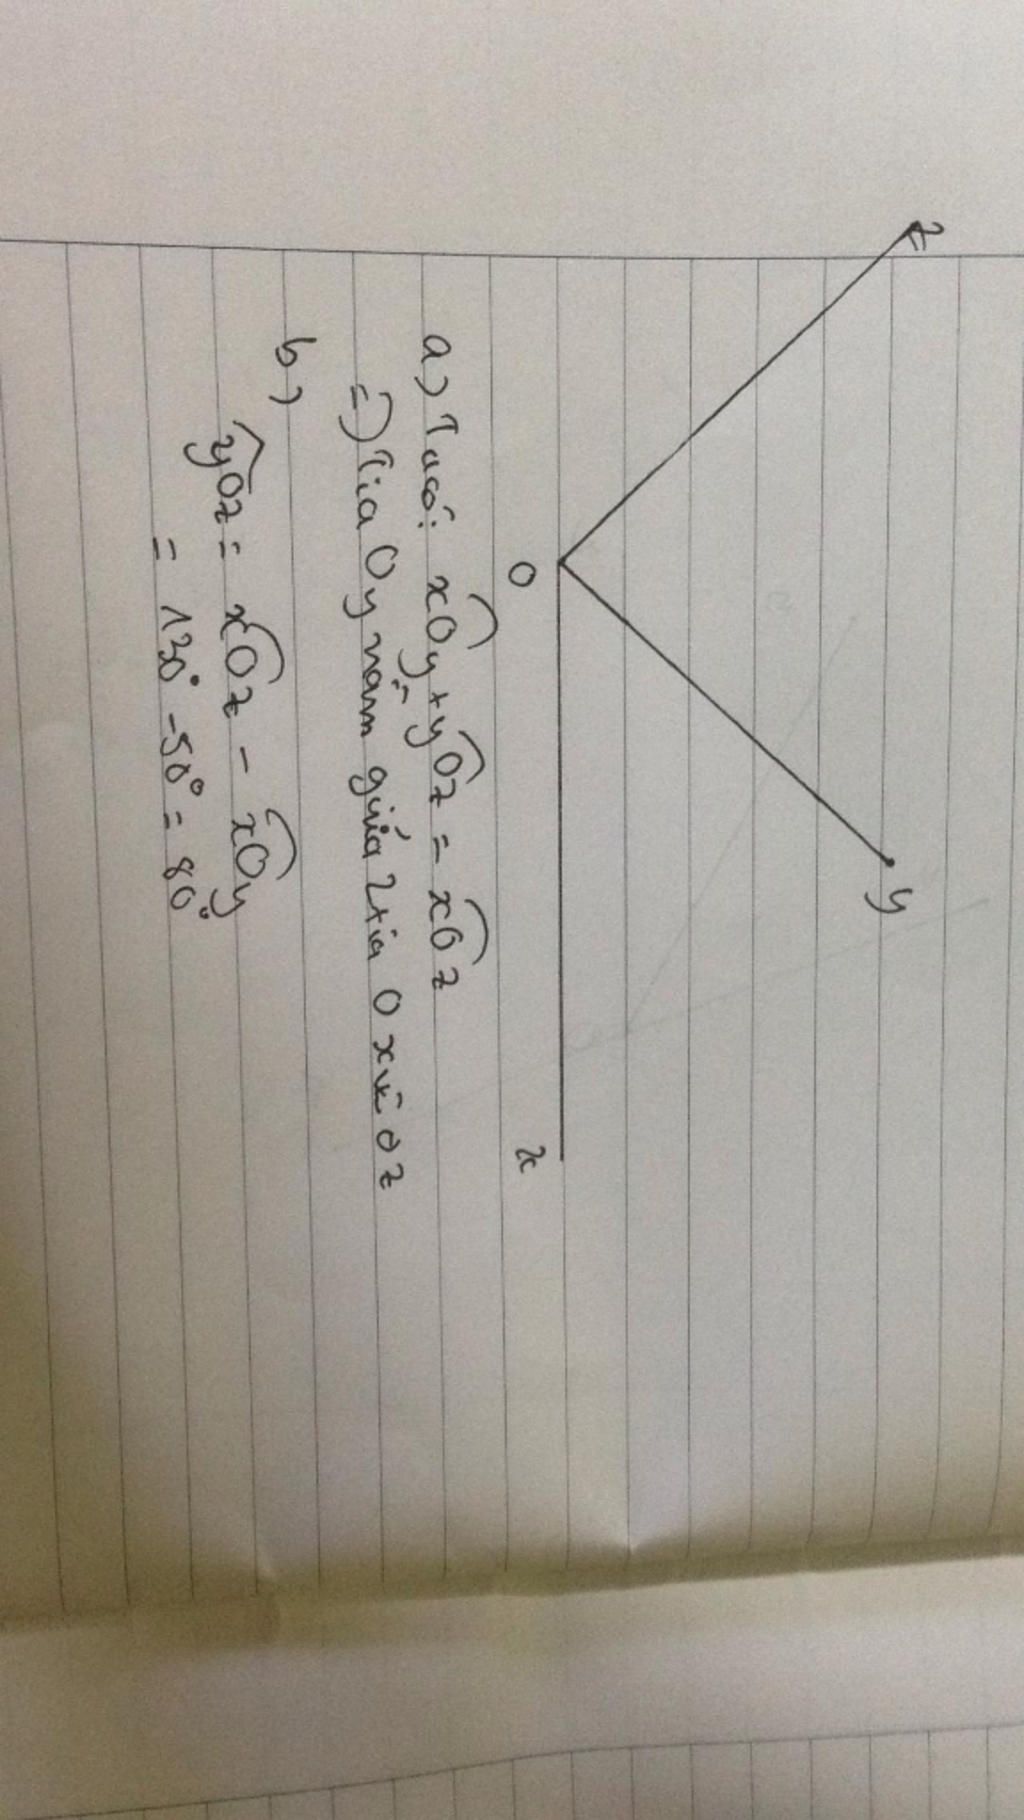 z
y
O
x
a) Ta có: xOy + yOz = xOz
=) Tia Oy nằm giữa 2 tia Ox và Oz
b)
yOz = xOz - xOy
= 130° - 50° = 80°